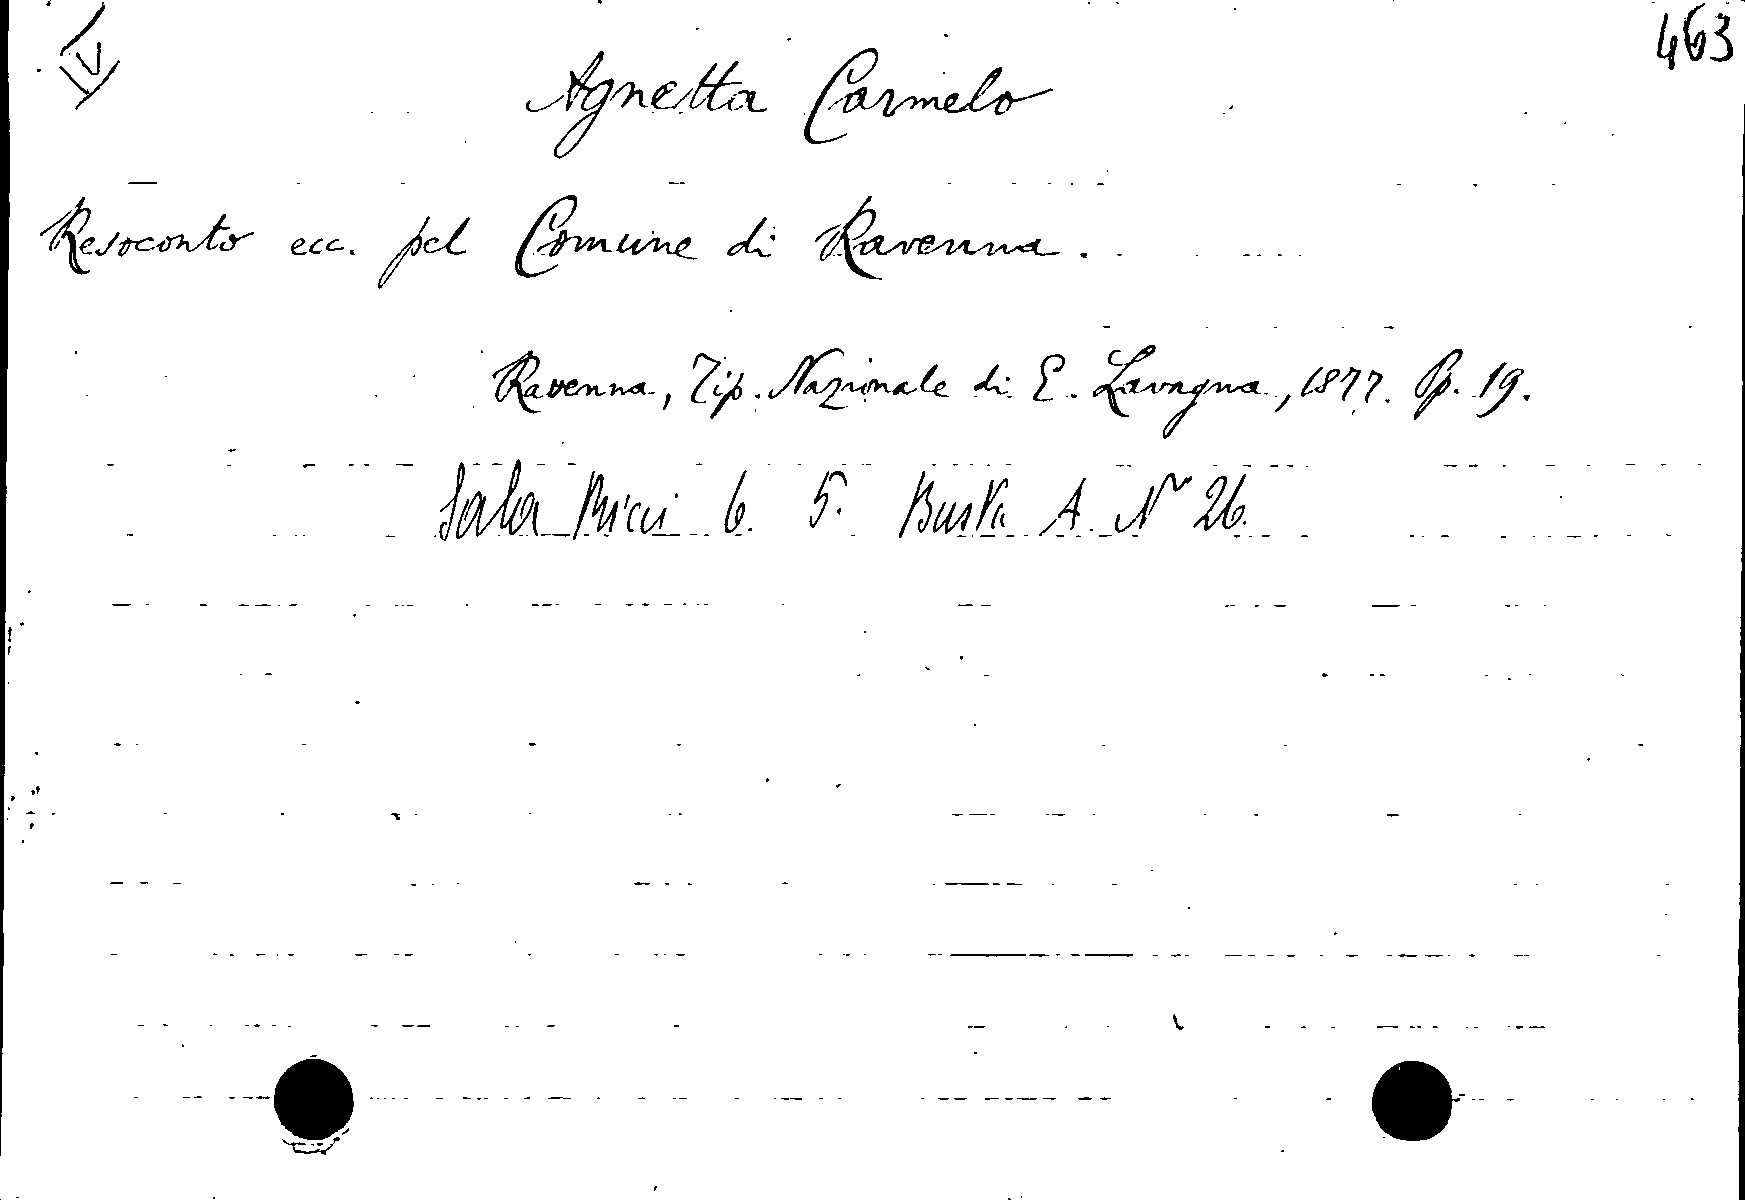 463
Agnetta Carmelo
Resoconto ecc. pel Comune di Ravenna.
Ravenna, Tip. Nazionale di E. Lavagna, 1877. Pp. 19.
Sala Ricci 6. 5. Busta A. Nº 26.